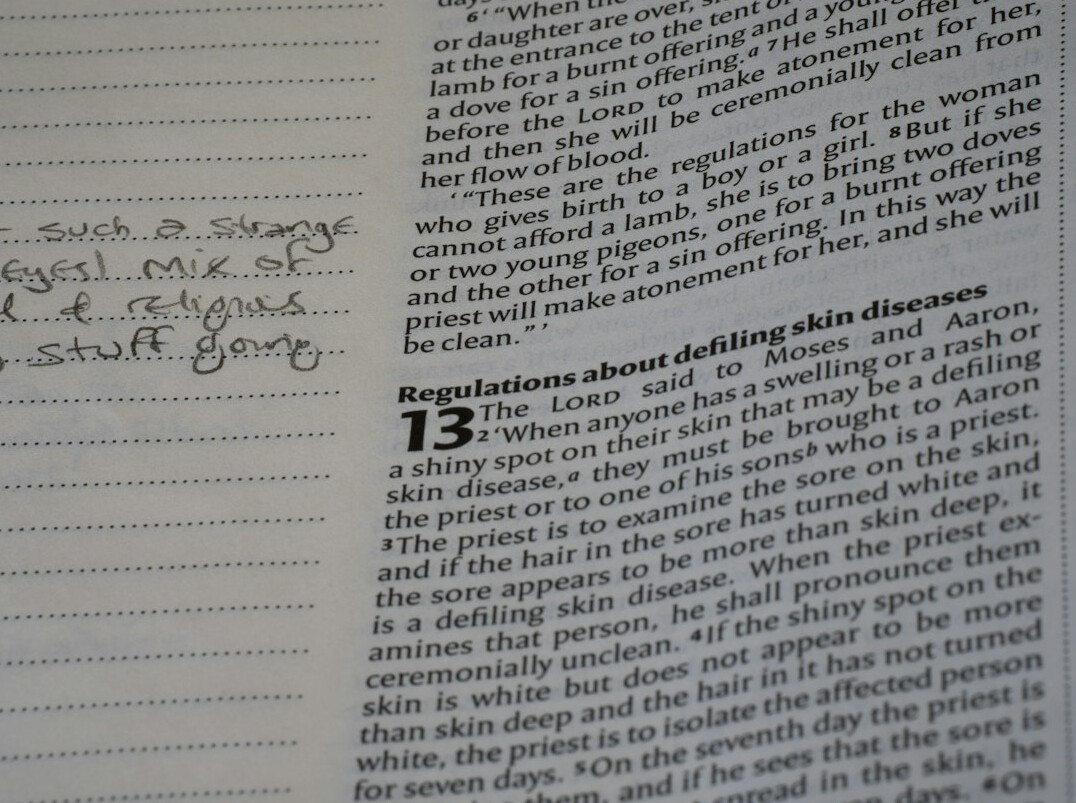 such a strange
eyes) mix of
& religious
stuff going
6 ‘“When the
or daughter are over,
at the entrance to the tent of
lamb for a burnt offering and a young
a dove for a sin offering.a 7 He shall offer
before the LORD to make atonement for her,
and then she will be ceremonially clean from
her flow of blood.
‘“These are the regulations for the woman
who gives birth to a boy or a girl. 8 But if she
cannot afford a lamb, she is to bring two doves
or two young pigeons, one for a burnt offering
and the other for a sin offering. In this way the
priest will make atonement for her, and she will
be clean.”’
Regulations about defiling skin diseases
13 The LORD said to Moses and Aaron,
2 ‘When anyone has a swelling or a rash or
a shiny spot on their skin that may be a defiling
skin disease,a they must be brought to Aaron
the priest or to one of his sonsb who is a priest.
3 The priest is to examine the sore on the skin,
and if the hair in the sore has turned white and
the sore appears to be more than skin deep, it
is a defiling skin disease. When the priest ex-
amines that person, he shall pronounce them
ceremonially unclean. 4 If the shiny spot on the
skin is white but does not appear to be more
than skin deep and the hair in it has not turned
white, the priest is to isolate the affected person
for seven days. 5 On the seventh day the priest is
them, and if he sees that the sore is
spread in the skin, he
days. 6 On